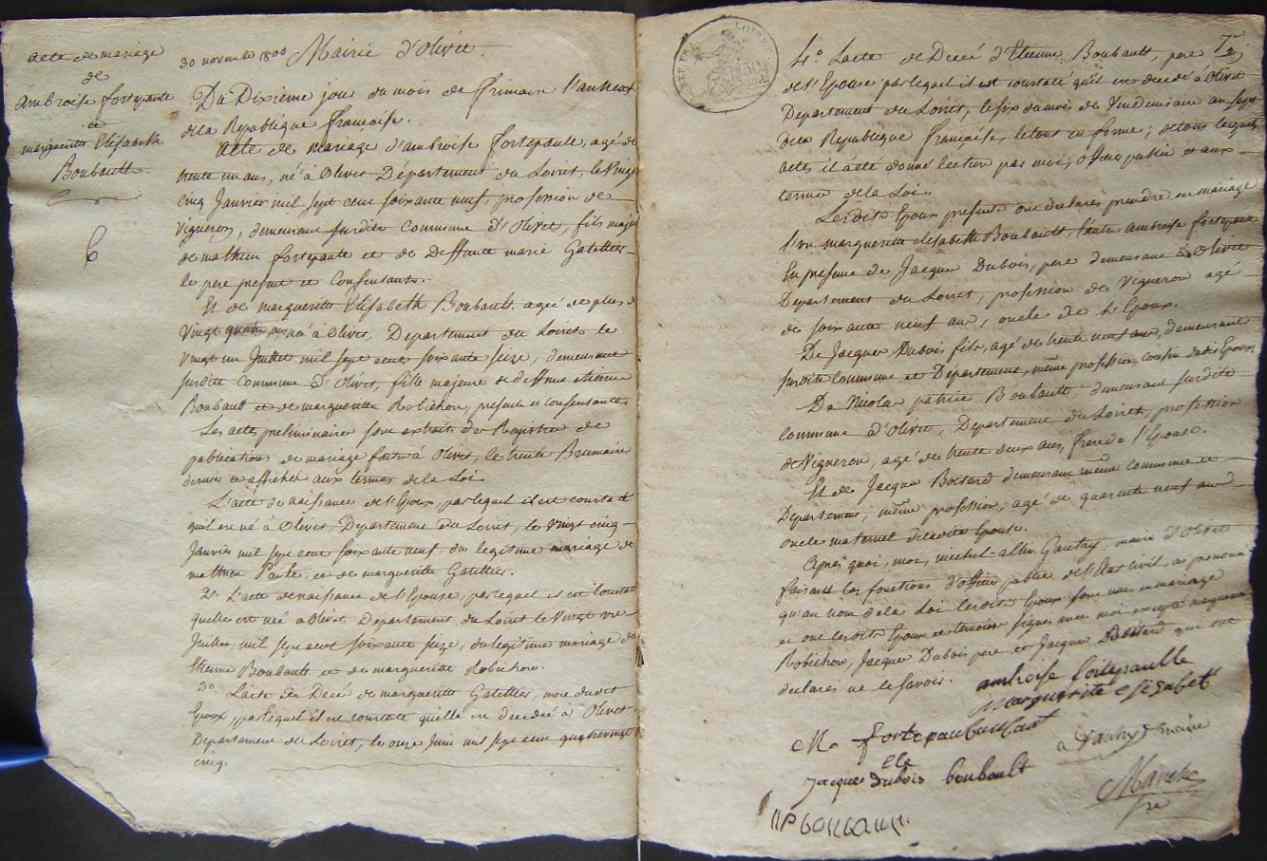 acte de mariage
de
ambroise fortepaule
et
marguerite Elisabeth
Boubault
6
30 novembre 1800 Mairie d'Olivet.
Du Dixieme jour du mois de frimaire l'an neuf
de la Republique française.
acte de mariage d'ambroise fortepaule, agé de
trente un ans, né à Olivet Département du Loiret, le Vingt
cinq Janvier mil sept cent soixante neuf, profession de
Vigneron, demeurant susdite commune d'Olivet, fils majeur
de mathieu fortepaule et de Deffunte marie Gatellier
le pere present et Consentant.
Et de marguerite Elisabeth Boubault agée de plus de
Vingt quatre ans née à Olivet, Departement du Loiret le
vingt un Juillet mil sept cent soixante seize, demeurant
susdite Commune d'Olivet, fille majeure de deffunt etienne
Boubault et de marguerite Robichon, presente et consentante
Les actes preliminaires sont extraits des Registres de
publications de mariage faites à Olivet, le trente Brumaire
dernier et affichés aux termes de la Loi.
L'acte de naissance de l'Epoux par lequel il est constaté
qu'il est né à Olivet Departement du Loiret, le Vingt cinq
Janvier mil sept cent soixante neuf du legitime mariage de
mathieu Paule et de marguerite Gatellier.
2° L'acte de naissance de l'Epouse, par lequel il est constaté
qu'elle est née à Olivet Departement du Loiret le Vingt un
Juillet mil sept cent soixante seize, du legitime mariage de
Etienne Boubault et de marguerite Robichon.
3° L'acte de Decé de marguerite Gatellier, mere dudit
Epoux, par lequel il est constaté qu'elle est decedée à Olivet
Departement du Loiret, le onze Juin mil sept cent quatrevingt
cinq.
4° L'acte de Decé d'Etienne Boubault, pere
de l'Epouse par lequel il est constaté qu'il est decedé à Olivet
Departement du Loiret, le six du mois de Vendemiaire an sept
de la Republique française, le tout en forme; de tous lesquels
actes il a été donné lecture par moi, officier public et aux
termes de la Loi.
Lesdits Epoux presents ont declarés prendre en mariage
l'un marguerite elisabeth Boubault, l'autre ambroise fortepaule
En presence de Jacques Dubois, pere demeurant à Olivet
Departement du Loiret, profession de Vigneron agé
de soixante neuf ans, oncle de l'Epoux.
De Jacques Dubois fils, agé de trente neuf ans, demeurant
susdite Commune et Departement, même profession, cousin dudit Epoux.
De Nicolas patrice Boubault demeurant susdite
commune d'Olivet, Departement du Loiret, profession
de Vigneron, agé de trente deux ans, frere de l'Epouse.
Et de Jacques Bottard demeurant même commune et
Departement, même profession, agé de quarante neuf ans
oncle maternel de ladite Epouse.
Après quoi, moi, michel Gautry, maire d'Olivet
faisant les fonctions d'officier public de l'Etat civil, ai prononcé
qu'au nom de la Loi lesdits Epoux sont unis en mariage
et ont lesdits Epoux et temoins signés avec moi excepté marguerite
Robichon, Jacques Dubois pere et Jacques Bottard qui ont
declarés ne le savoir.
ambroise fortepaulle
marguerite elizabet
M fortepaule
Jacque Dubois boubault
maire